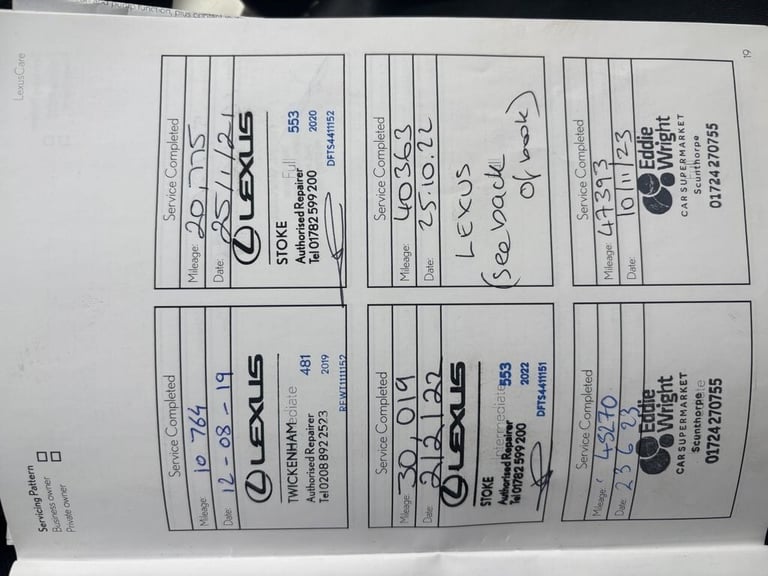 LexusCare
Servicing Pattern
Business owner
Private owner
Service Completed
Mileage: 10 764
Date: 12-08-19
LEXUS
TWICKENHAM
481
Authorised Repairer
Tel 0208 892 2523
2019
REWT1111152
Service Completed
Mileage: 20,775
Date: 25/1/21
LEXUS
STOKE
Full
553
Authorised Repairer
Tel 01782 599 200
2020
DFTS4411152
Service Completed
Mileage: 30,019
Date: 2/2/22
LEXUS
STOKE
Intermediate
553
Authorised Repairer
Tel 01782 599 200
2022
DFTS4411151
Service Completed
Mileage: 40363
Date: 25.10.22
LEXUS
(see back
of book)
Service Completed
Mileage: 45270
Date: 23 6 23
Eddie
Wright
CAR SUPERMARKET
Scunthorpe
01724 270755
Service Completed
Mileage: 47393
Date: 10/11/23
Eddie
Wright
CAR SUPERMARKET
Scunthorpe
01724 270755
19